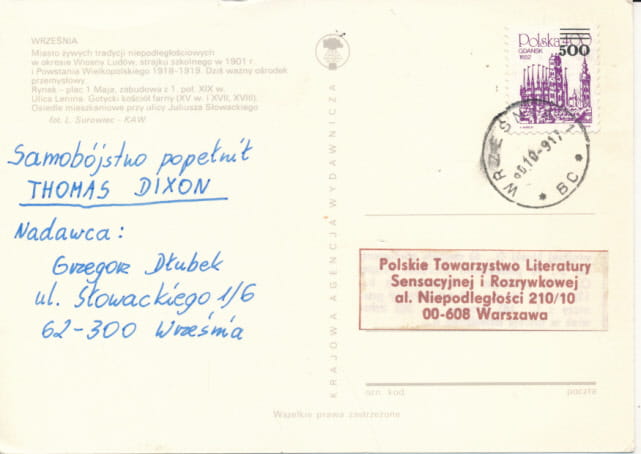 WRZEŚNIA
Miasto żywych tradycji niepodległościowych
w okresie Wiosny Ludów, strajku szkolnego w 1901 r.
i Powstania Wielkopolskiego 1918-1919. Dziś ważny ośrodek
przemysłowy.
Rynek - plac 1 Maja, zabudowa z 1. poł. XIX w.
Ulica Lenina. Gotycki kościół farny (XV w. i XVII, XVIII).
Osiedle mieszkaniowe przy ulicy Juliusza Słowackiego
fot. L. Surowiec - KAW
Samobójstwo popełnił
THOMAS DIXON
Nadawca:
Grzegorz Dłubek
ul. Słowackiego 1/6
62-300 Września
KRAJOWA AGENCJA WYDAWNICZA
Polska
500
GDAŃSK
1652
WRZEŚNIA
BC
Polskie Towarzystwo Literatury
Sensacyjnej i Rozrywkowej
al. Niepodległości 210/10
00-608 Warszawa
ozn. kod.
poczta
Wszelkie prawa zastrzeżone